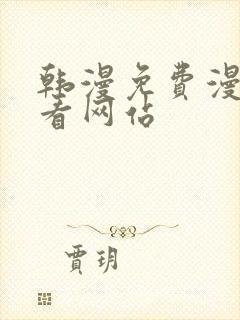 韩漫免费漫
看网站
贾玥